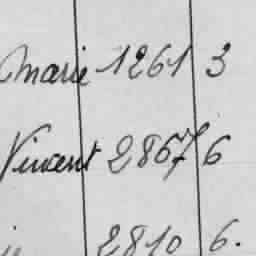 Marie 1261 3
Vincent 2867 6
2810 6.